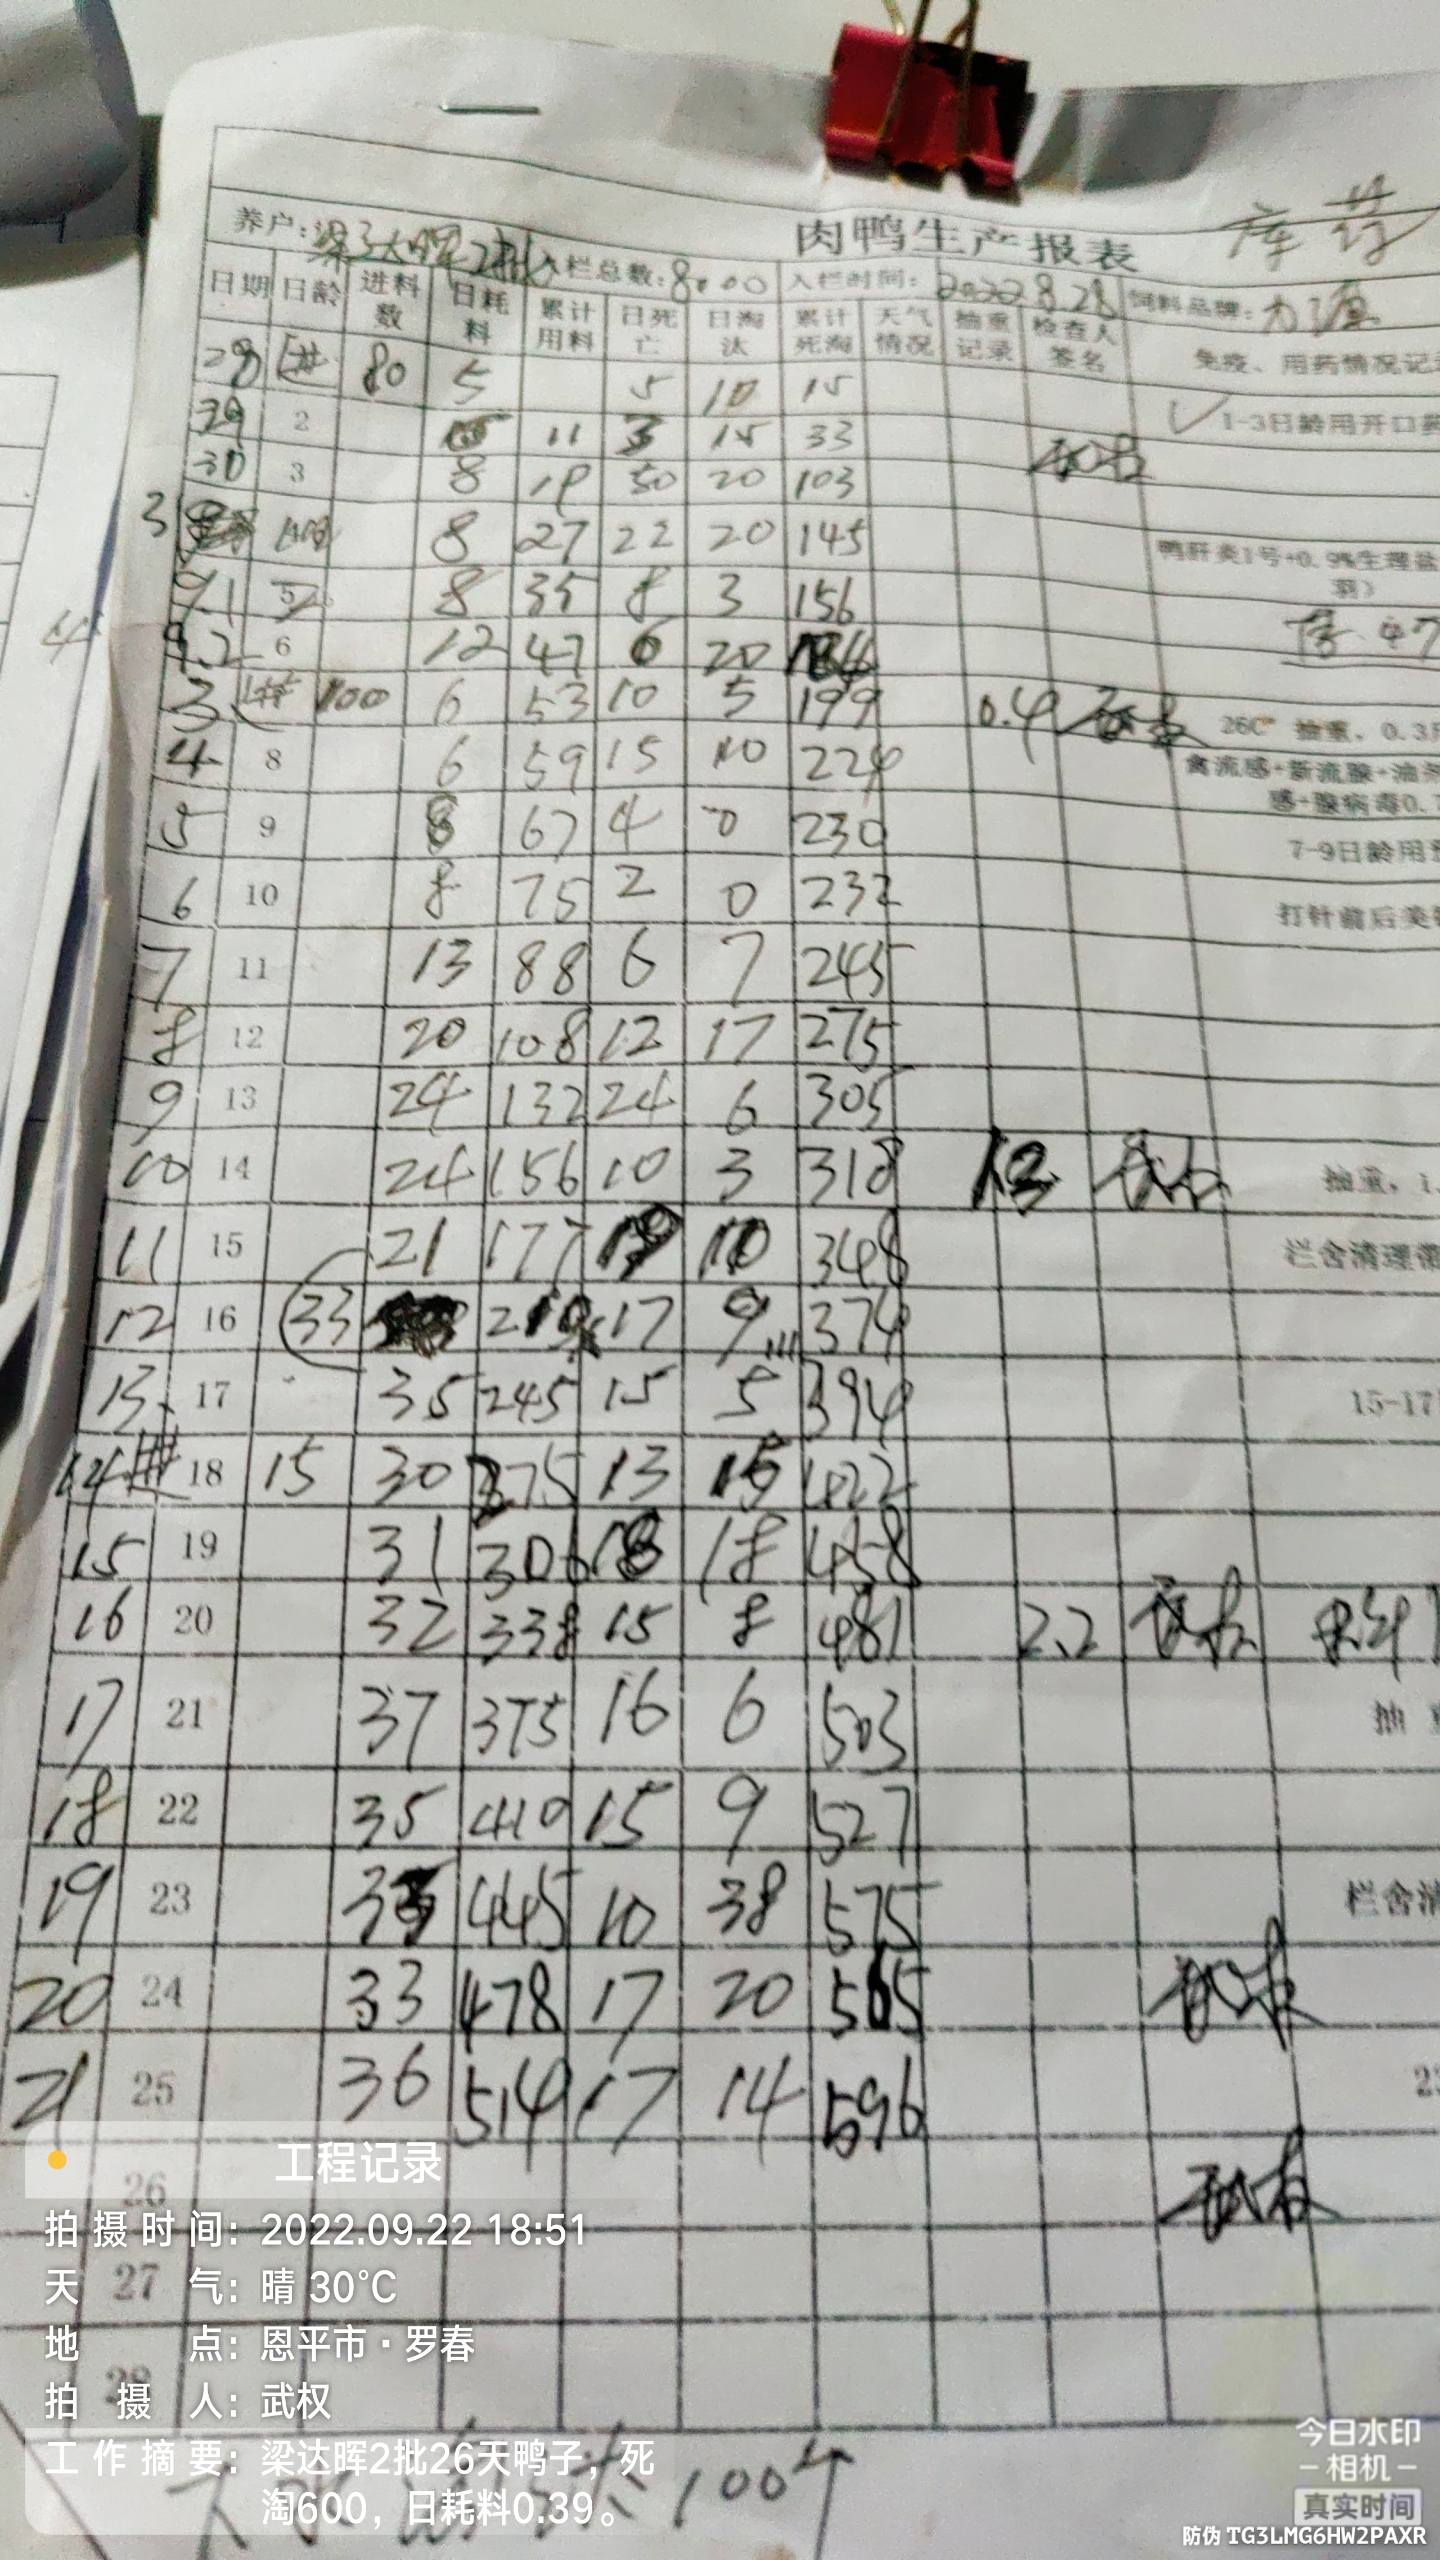 库存
肉鸭生产报表
养户: 梁大晖2批 入栏总数: 8000 入栏时间: 2022.8.28 饲料品牌:
日期 日龄 进料数 日耗料 累计用料 日死亡 日淘汰 累计死淘 天气情况 抽重记录 检查人签名 免疫、用药情况记
28 80 5 5 10 15
29 2 11 3 15 33 1-3日龄用开口药
30 3 8 19 50 20 103
8 27 22 20 145 鸭肝炎1号+0.9%生理盐
9.1 5 8 35 8 3 156
9.2 6 12 47 6 20 47
3 100 6 53 10 5 199 0.4 26C° 抽重，0.3
4 8 6 59 15 10 224 禽流感+新流腺+油
感+腺病毒0.7
5 9 8 67 4 0 230 7-9日龄用
6 10 8 75 2 0 232 打针前后
7 11 13 88 6 7 245
8 12 20 108 12 17 275
9 13 24 132 24 6 305
10 14 24 156 10 3 318 抽重，1.
11 15 21 177 19 10 348 栏舍清理带
12 16 33 17 9 374
13 17 35 245 15 5 394 15-17
14 18 15 30 275 13 15 422
15 19 31 306 18 18 458
16 20 32 338 15 8 481 2.2
17 21 37 375 16 6 503 抽
18 22 35 410 15 9 527
19 23 35 445 10 38 575 栏舍清
20 24 33 478 17 20 565
21 25 36 514 17 14 596
26
27
28
100个
工程记录
拍摄时间: 2022.09.22 18:51
天气: 晴 30℃
地点: 恩平市·罗春
拍摄人: 武权
工作摘要: 梁达晖2批26天鸭子，死
淘600，日耗料0.39。
今日水印
相机
真实时间
防伪 TG3LMG6HW2PAXR